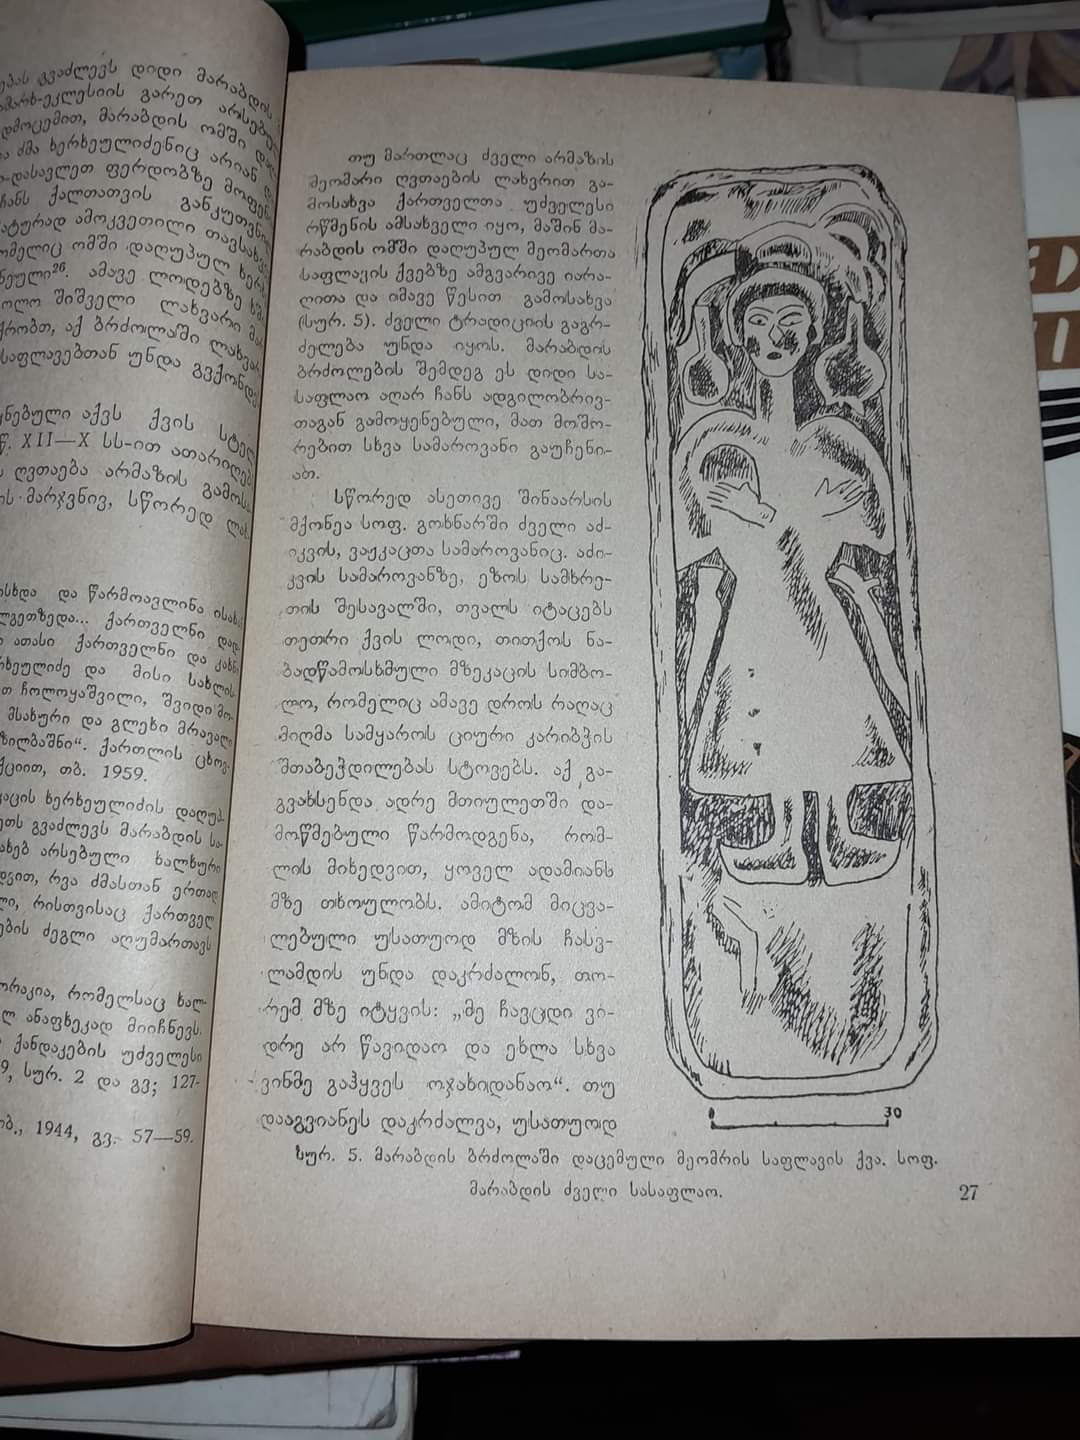 ებას გვაძლევს დიდი მარაბდის
გარეთ არსებულ
დმოცემით, მარაბდის ომში
ძმა ხერხეულიძენიც არიან
ფერდობზე
ჩანს ქალთათვის
ამოკვეთილი
ომელიც ომში დაღუპულ
ამავე ლოდებზე
შიშველი ლახვარი
აქ ბრძოლაში
საფლავებთან უნდა გვქონდეს
აქვს ქვის
XII—X სს-ით
ღვთაება არმაზის
მარჯვნივ, სწორედ
და წარმოავლინა
ქართველნი
ათასი ქართველნი და
და მისი
ჩოლოყაშვილი, შვიდი
მსახური და გლეხი მრავალი
ქართლის
თბ. 1959.
ხერხეულიძის
გვაძლევს მარაბდის
არსებული ხალხური
რვა ძმასთან ერთად
რისთვისაც ქართველ
ძეგლი აღუმართავს
რომელსაც ხალ-
ანაფხეკად მიიჩნევს.
ქანდაკების უძველესი
სურ. 2 და გვ; 127-
1944, გვ. 57—59.
თუ მართლაც ძველი არმაზის
მეომარი ღვთაების ლახვრით გა-
მოსახვა ქართველთა უძველესი
რწმენის ამსახველი იყო, მაშინ მა-
რაბდის ომში დაღუპულ მეომართა
საფლავის ქვებზე ამგვარივე იარა-
ღითა და იმავე წესით გამოსახვა
(სურ. 5). ძველი ტრადიციის გაგრ-
ძელება უნდა იყოს. მარაბდის
ბრძოლების შემდეგ ეს დიდი სა-
საფლაო აღარ ჩანს ადგილობრივ-
თაგან გამოყენებული, მათ მოშო-
რებით სხვა სამაროვანი გაუჩენი-
ათ.
სწორედ ასეთივე შინაარსის
მქონეა სოფ. გოხნარში ძველი აძ-
იკვის, ვაჟკაცთა სამაროვანიც. აძი-
კვის სამაროვანზე, ეზოს სამხრე-
თის შესავალში, თვალს იტაცებს
თეთრი ქვის ლოდი, თითქოს ნა-
ბადწამოსხმული მზეკაცის სიმბო-
ლო, რომელიც ამავე დროს რაღაც
მიღმა სამყაროს ციური კარიბჭის
შთაბეჭდილებას სტოვებს. აქ გა-
გვახსენდა ადრე მთიულეთში და-
მოწმებული წარმოდგენა, რომ-
ლის მიხედვით, ყოველ ადამიანს
მზე თხოულობს. ამიტომ მიცვა-
ლებული უსათუოდ მზის ჩასვ-
ლამდის უნდა დაკრძალონ, თო-
რემ მზე იტყვის: „მე ჩავცდი ვი-
დრე არ წავიდაო და ეხლა სხვა
ვინმე გაჰყვეს ოჯახიდანაო“. თუ
დააგვიანეს დაკრძალვა, უსათუოდ
30
სურ. 5. მარაბდის ბრძოლაში დაცემული მეომრის საფლავის ქვა. სოფ.
მარაბდის ძველი სასაფლაო.
27